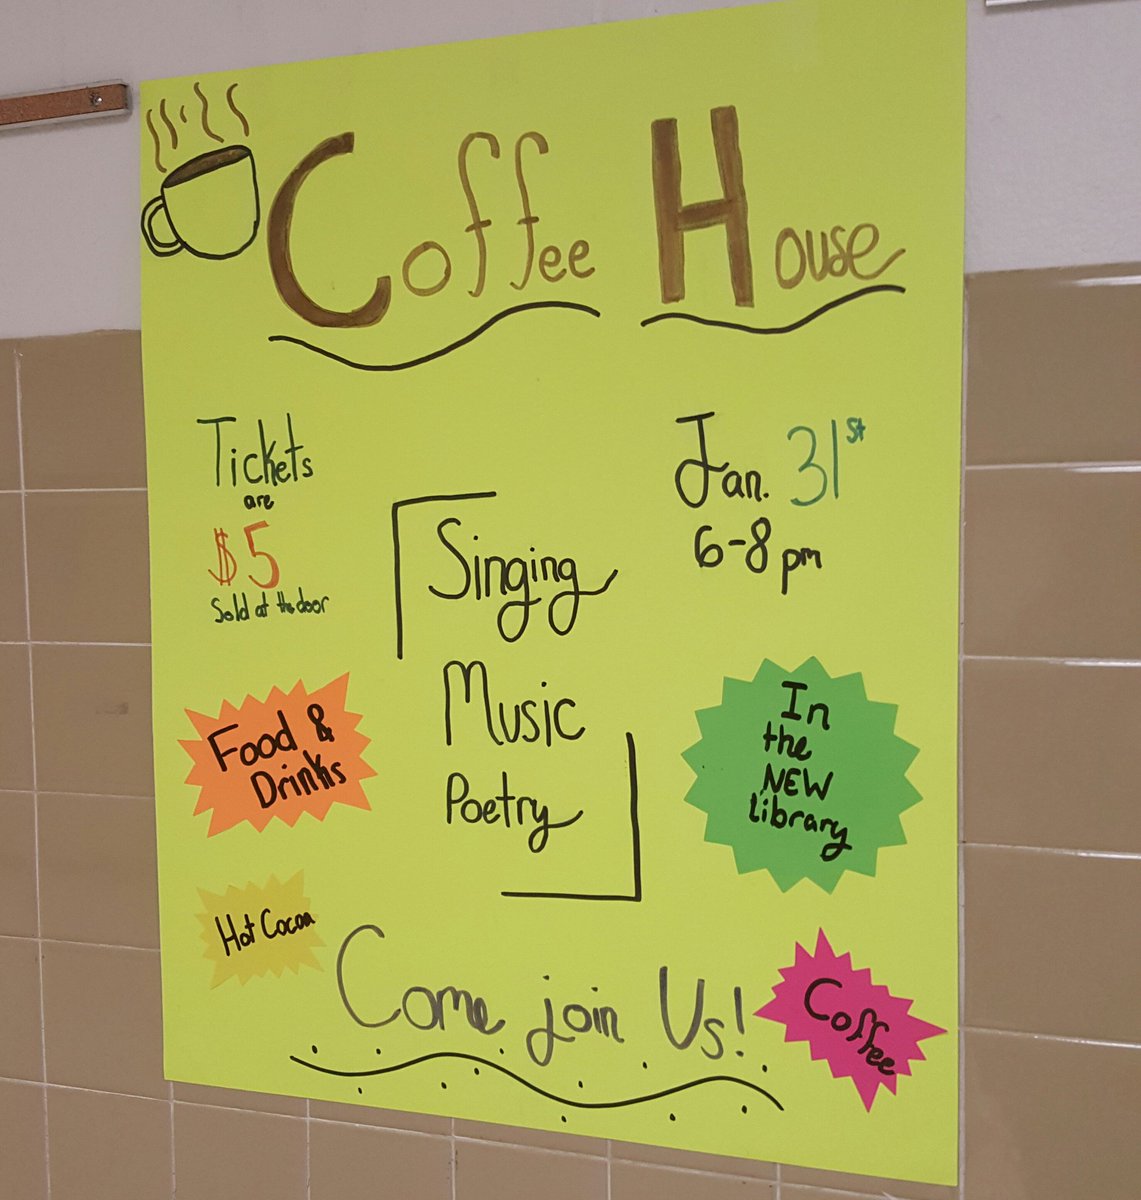 Coffee House
Tickets
are
$5
Sold at the door
Jan. 31st
6-8 pm
Singing
Music
Poetry
Food &
Drinks
In
the
NEW
library
Hot Cocoa
Come join Us!
Coffee